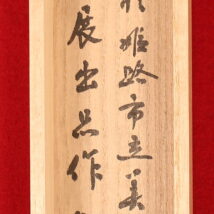 於姫路市立美
展出品作